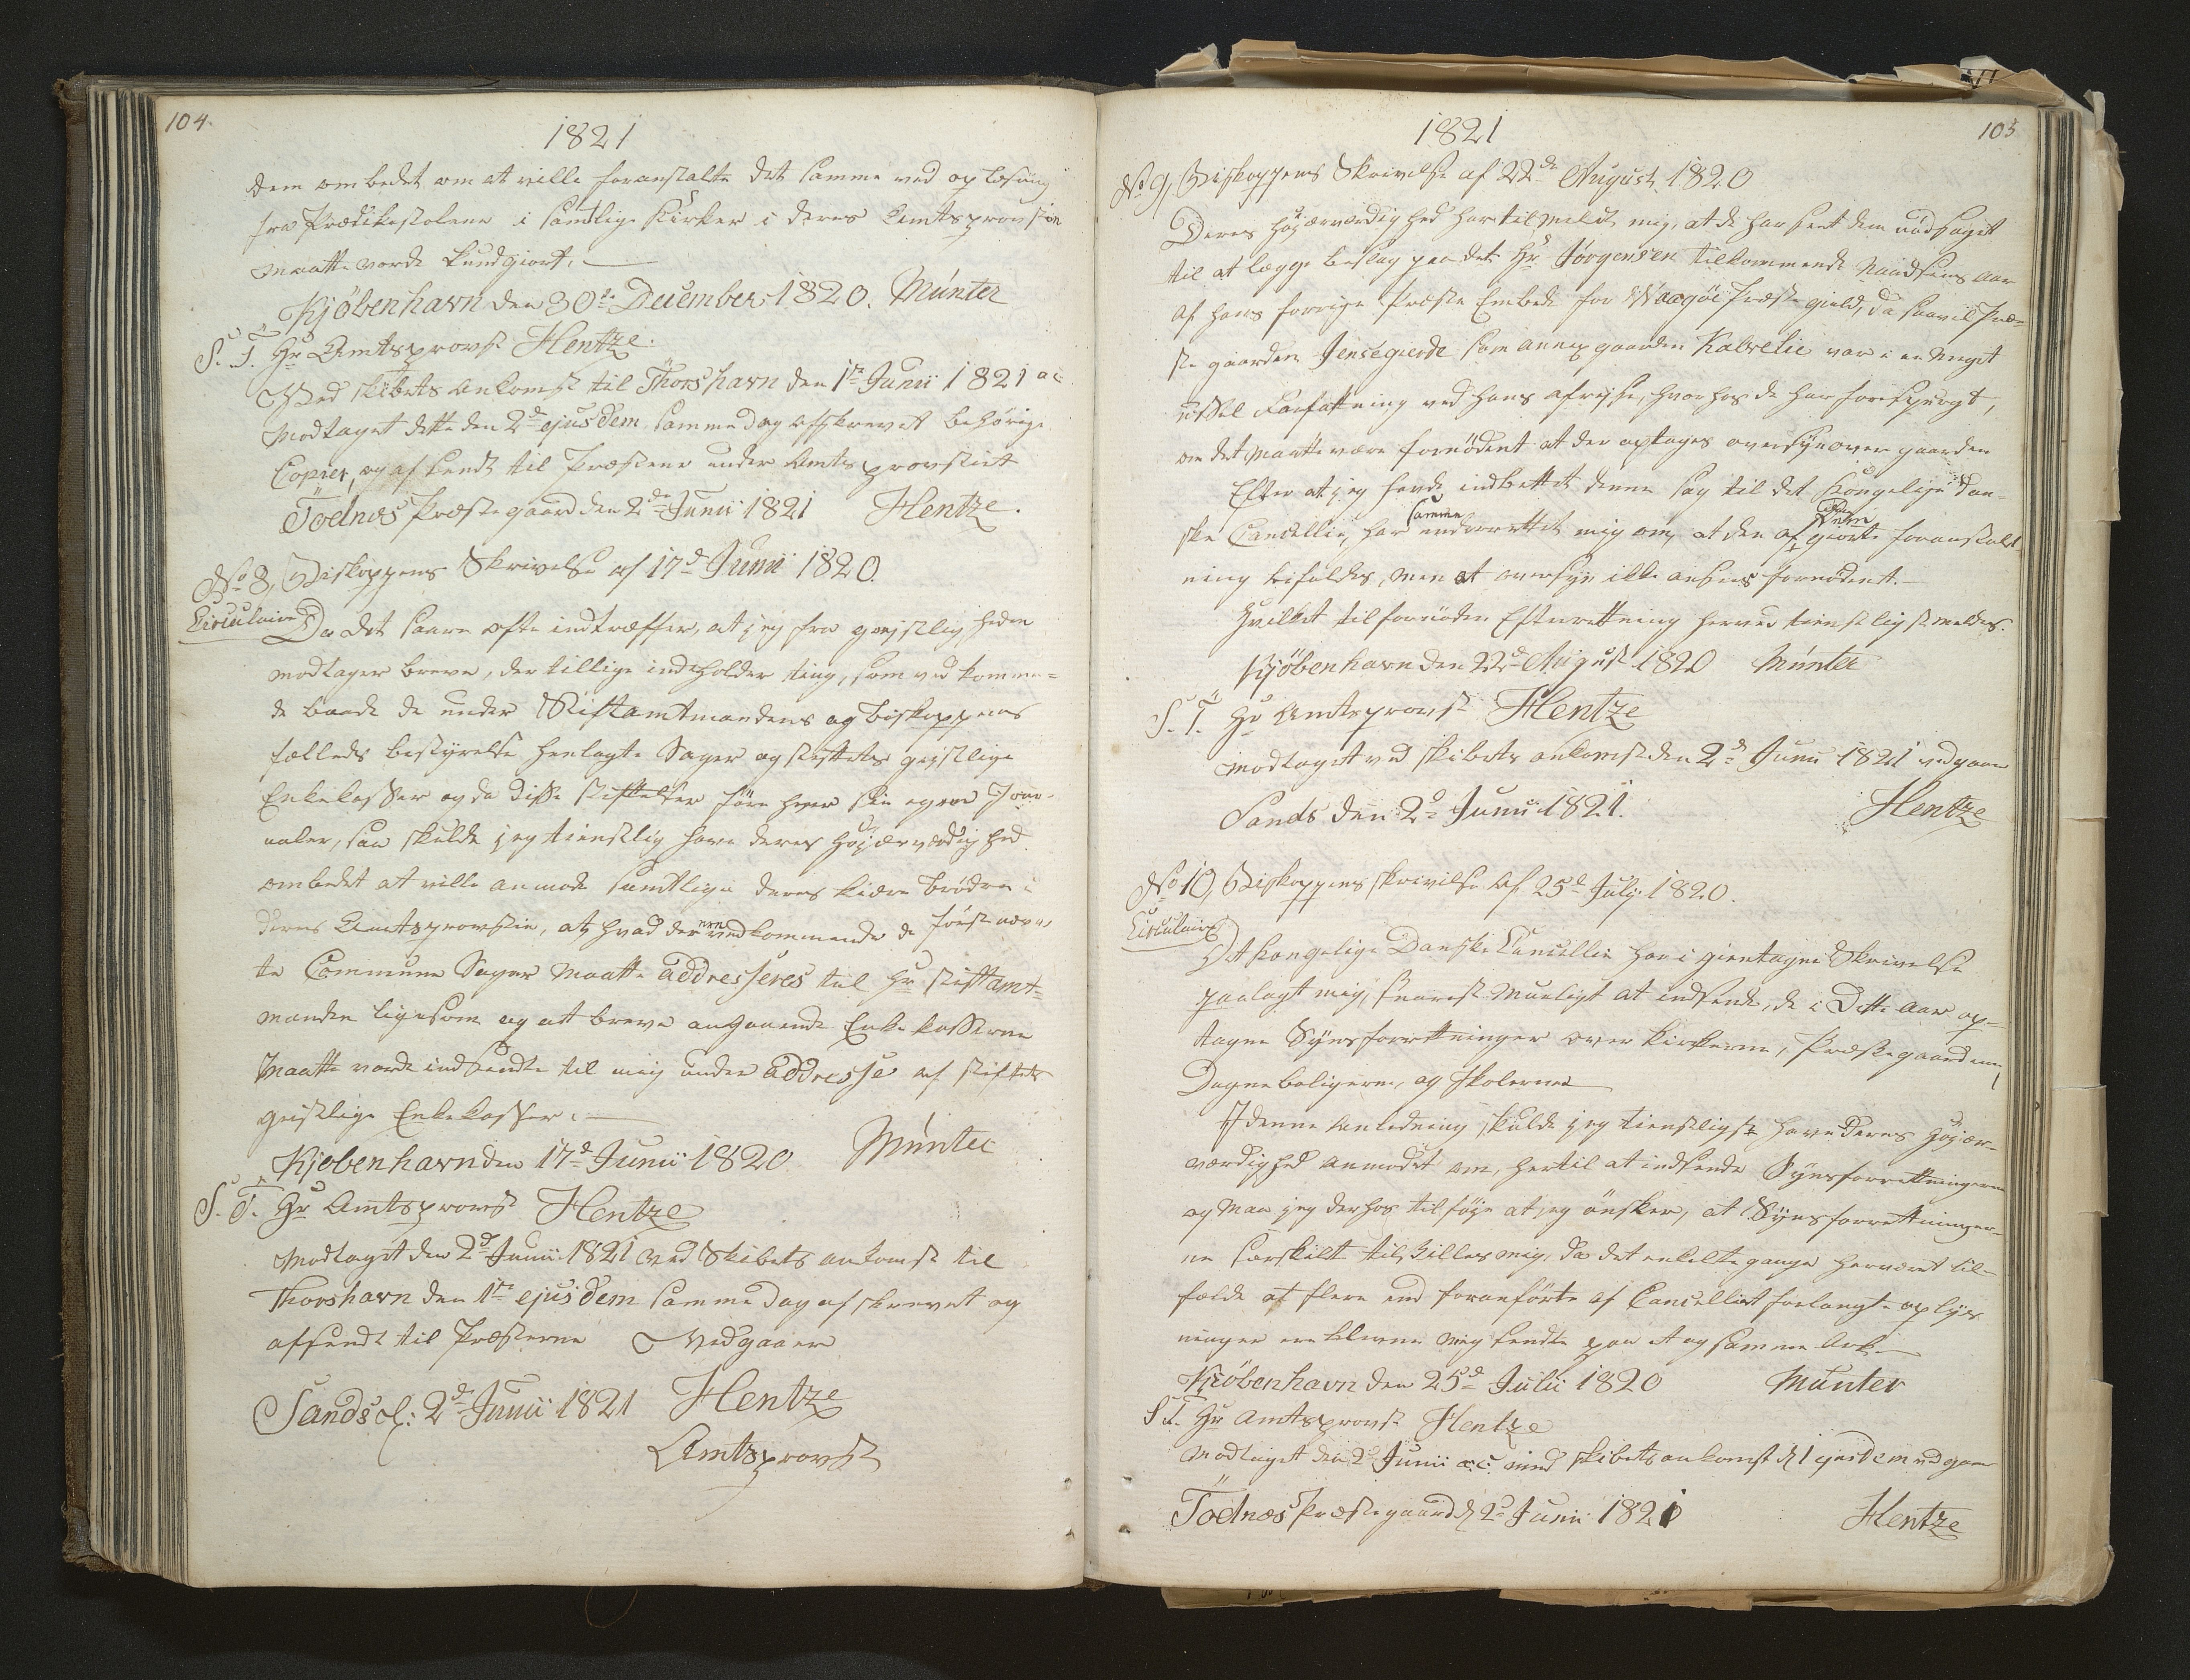 104.
1821
dem ombedet om at ville foranstalte det samme ved oplæsning
fra Prædikestolene i samtlige Kirker i deres Amtsprovstie
maatte vorde kundgiort.
Kjöbenhavn den 30te December 1820. Münter
S. T. Hr Amtsprovst Hentze.
Ved skibets ankomst til Thorshavn den 1te Junii 1821 ac
modtaget dette den 2d ejusdem samme dag afskrevet behörige
Copier, og afsendt til Præsterne under Amtsprovstiet
Todnæs Præstegaard den 2de Junii 1821 Hentze.
No 8, Biskoppens Skrivelse af 17d Junii 1820.
Circulaire
Da det saare ofte indtræffer, at jeg fra geistligheden
modtager breve, der tillige indeholder ting, som vedkommen=
de baade de under Stiftamtmandens og Biskoppens
fælleds bestyrelse henlagte Sager og stiftets geistlige
Enkekasser og da disse stiftelser före hver sin egen Jour-
naler, saa skulde jeg tienstlig have deres Höjærværdighed
ombedet at ville anmode samtlige deres kiære brödre i
deres Amtsprovstie, at hvad der vedkommende de förstnævn
te Commune Sager maatte addresseres til Hr stiftamt=
manden ligesom og at breve angaaende Enkekasserne
maatte vorde indsendte til mig under addresse af stiftets
geistlige Enkekasser.
Kjobenhavn den 17d Junii 1820 Münter
S. T. Hr Amtsprovst Hentze
Modtaget den 2d Junii 1821 ved Skibets ankomst til
Thorshavn den 1te ejusdem samme dag afskrevet og
afsendt til Præsterne Vedgaaer
Sands d: 2d Junii 1821 Hentze
Amtsprovst
1821
105
No 9, Biskoppens Skrivelse af 22de August 1820
Deres Höjærværdighed har tilmeldt mig, at de har seet dem nödsaget
til at lægge beslag paa det Hr Jörgensen tilkommende Naadsens aar
af hans forrige Præste Embede for Waagöe Præstegield, da saavel Præ-
stegaarden Jensegierde som annexgaarden Kalvelie var i en meget
ussel Forfatning ved hans afreyse, hvorhos de har forespurgt,
om det maatte være fornödent at der optages oversyn over gaarden
Efter at jeg havde indbettet denne sag til det Kongelige Dan-
ske Cancellie, har samme underrettet mig om, at den af Dem giorte foranstalt
ning bifaldes, men at oversyn ikke ansees fornödent.
Hvilket til fornöden Efterretning herved tienstligst meldes.
Kjöbenhavn den 22d August 1820 Münter
S. T. Hr Amtsprovst Hentze
modtaget ved skibets ankomst den 2d Junii 1821 vedgaaer
Sands den 2d Junii 1821. Hentze
No 10, Biskoppens skrivelse af 25d July 1820.
Circulaire
Det Kongelige Danske Cancellie har i gientagne Skrivelse
paalagt mig, snarest mueligt at indsende, de i Dette aar op-
tagne Synsforretninger over kirkerne, Præstegaardene,
Degneboligerne, og skolerne
I denne anledning skulde jeg tienstligst have Deres Höjær-
værdighed anmodet om, hertil at indsende Synsforretningerne
og maa jeg derhos tilföje at jeg önsker, at Synsforretninger-
ne særskilt tilstilles mig, da det enkelte gange har været til-
fælde at flere end foranförte af Cancelliet forlangte oplys
ninger ere blevne mig sendte paa et og samme Ark.
Kjöbenhavn den 25d Julii 1820 Münter
S T. Hr Amtsprovst Hentze
Modtaget den 2d Junii ac: med skibets ankomst d 1 ejusdem vedgaaer
Todnæs Præstegaard d 2d Junii 1821 Hentze